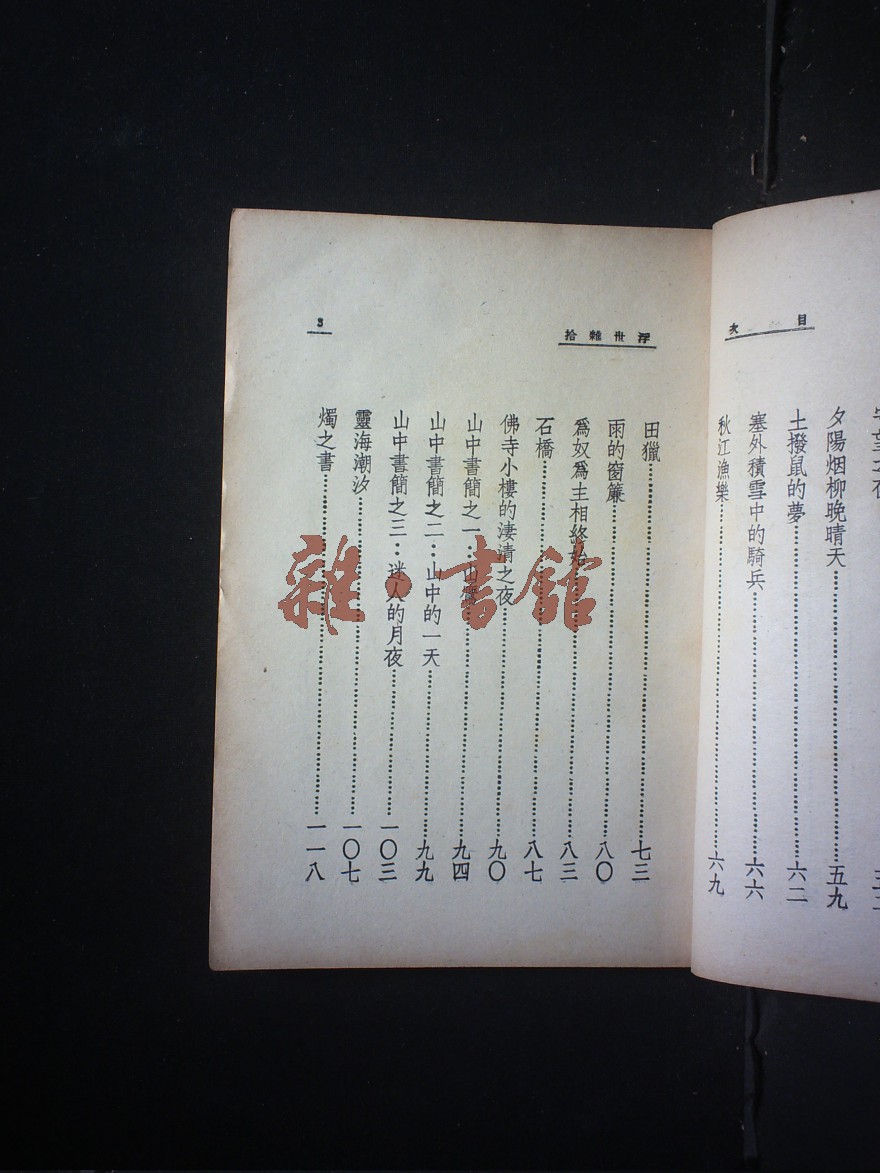 目次
夕陽烟柳晚晴天……五九
土撥鼠的夢……六二
塞外積雪中的騎兵……六六
秋江漁樂……六九
浮世雜拾
3
田獵……七三
雨的窗簾……八〇
爲奴爲主相終始……八三
石橋……八七
佛寺小樓的淒清之夜……九〇
山中書簡之一：山……九四
山中書簡之二：山中的一天……九九
山中書簡之三：迷人的月夜……一〇三
靈海潮汐……一〇七
燭之書……一一八
雜·書館